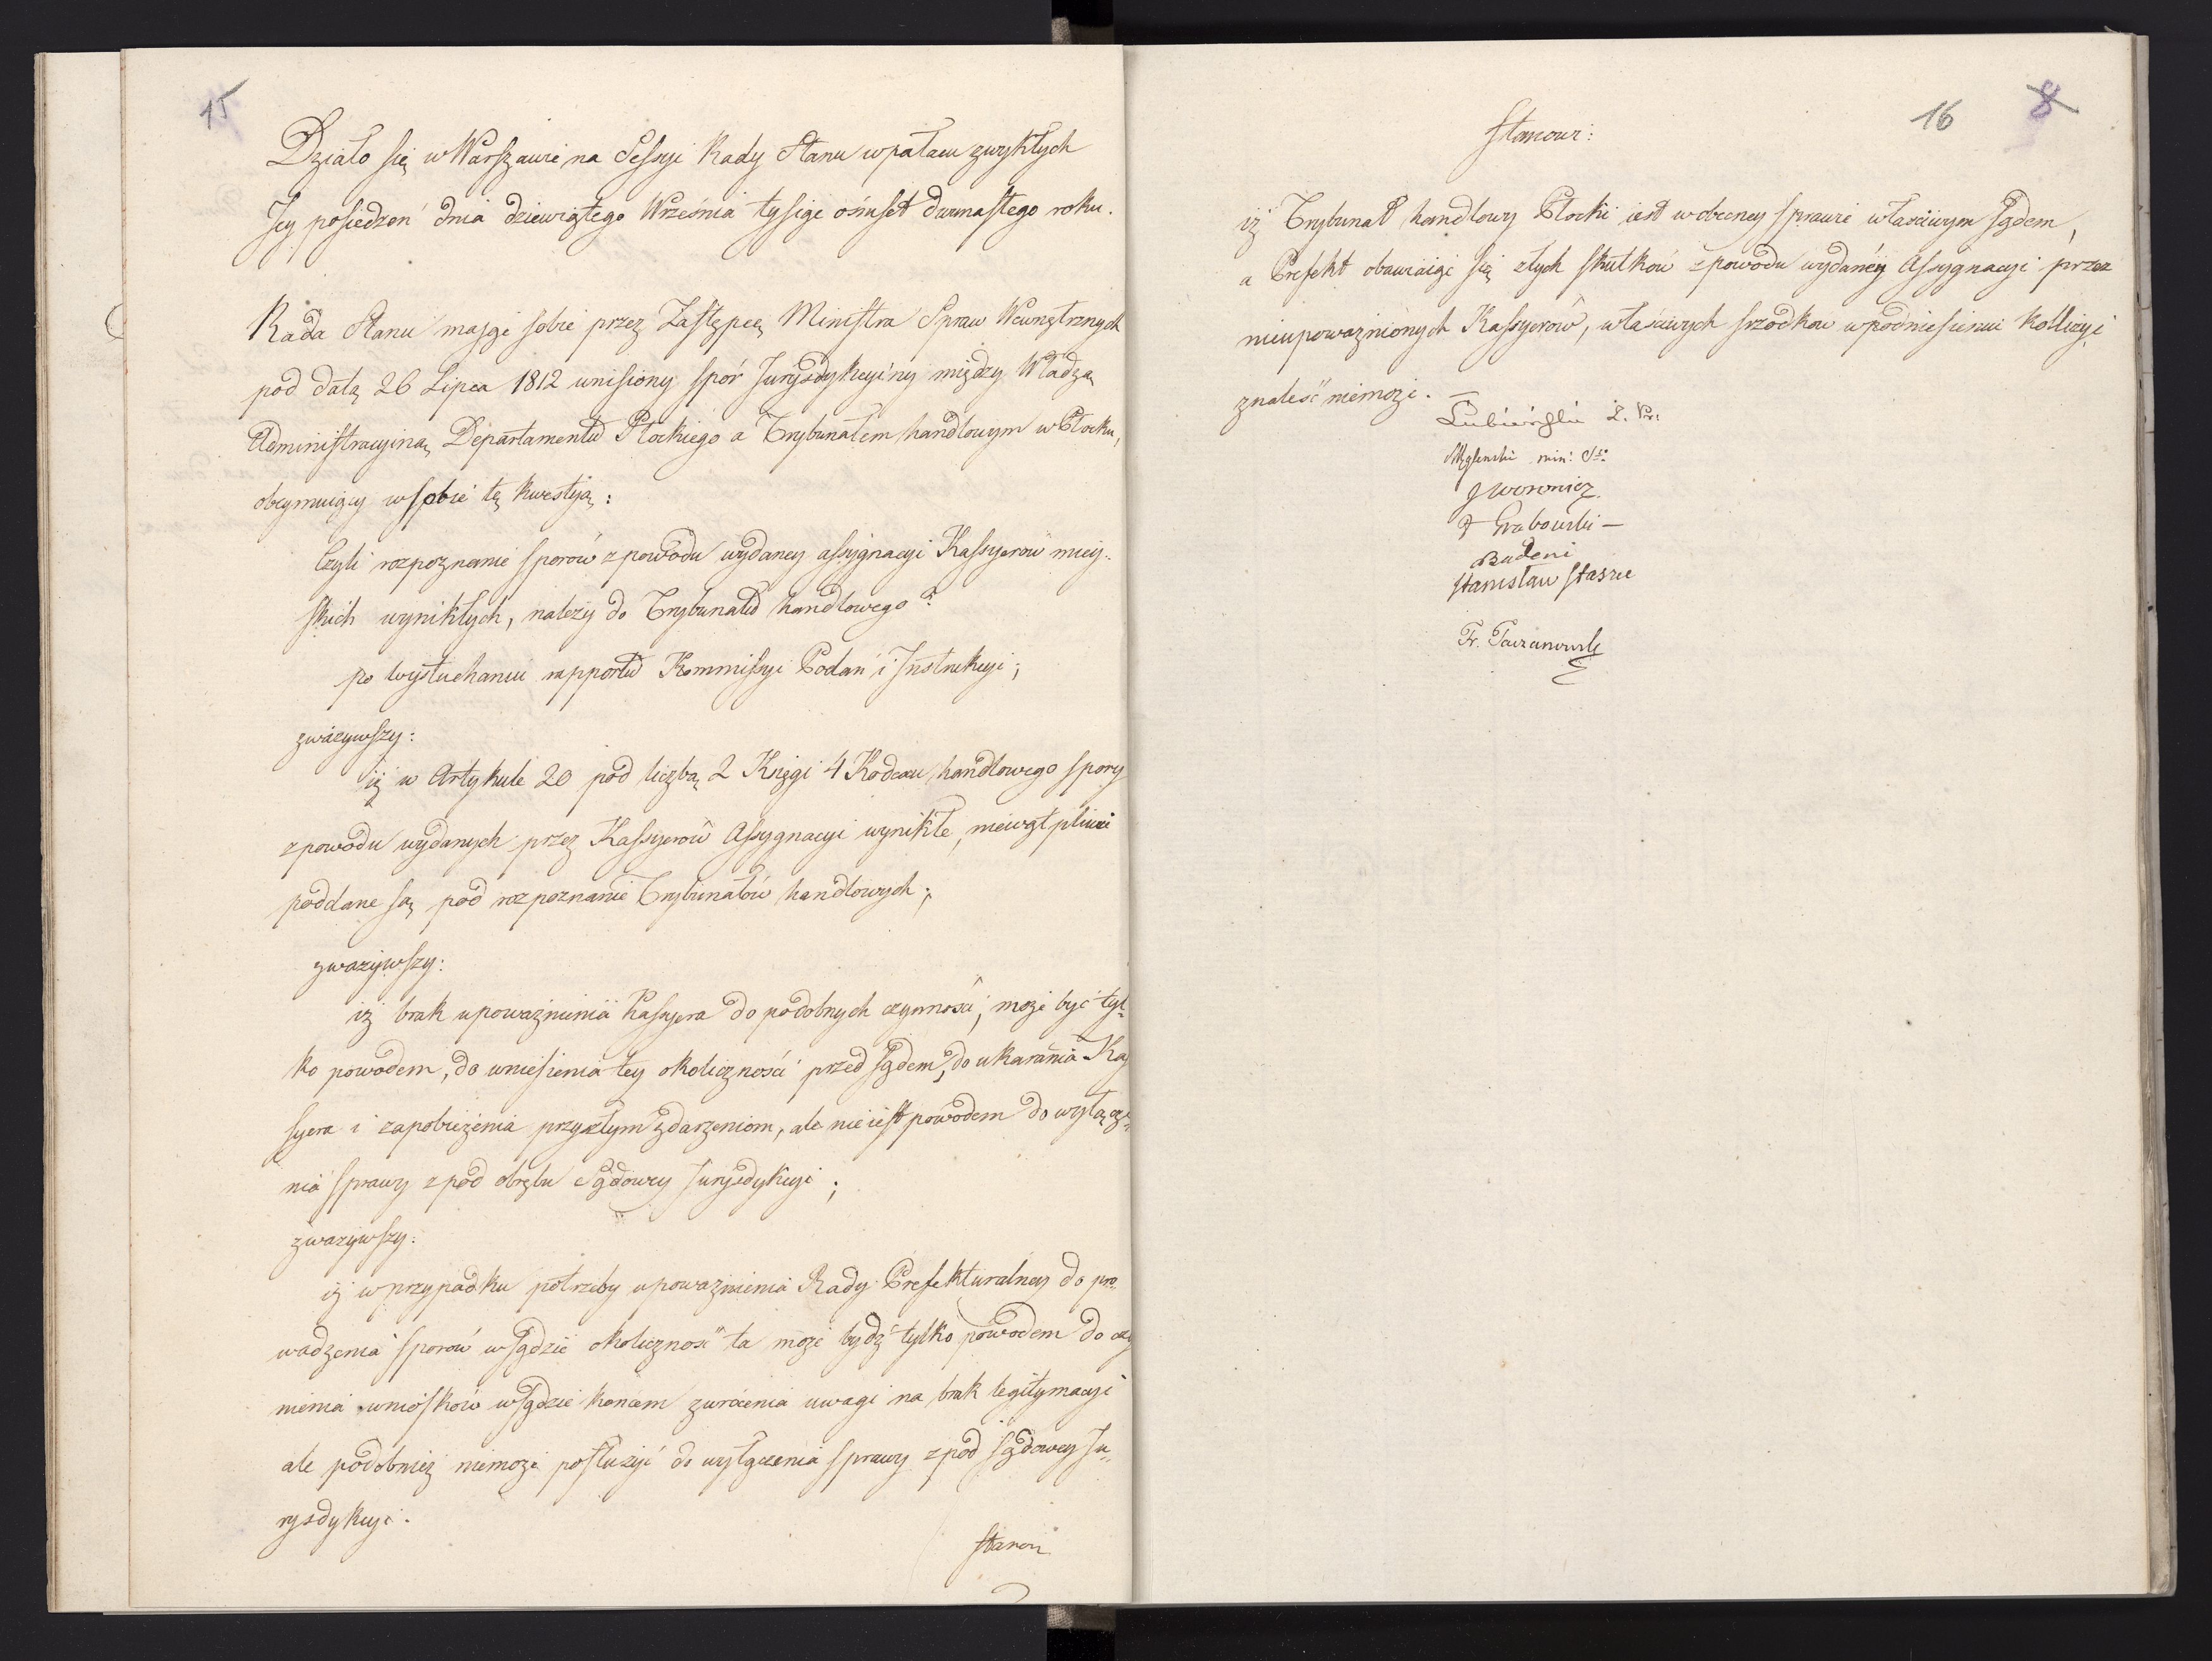 15
Działo się w Warszawie na Sessyi Rady Stanu w pałacu zwykłych
Jey posiedzeń dnia dziewiątego Września tysiąc ośmset dwunastego roku.
Rada Stanu maiąc sobie przez Zastępcę Ministra Spraw Wewnętrznych
pod datą 26 Lipca 1812 wniesiony spór Jurysdykcyiny między Władzą
Administracyiną Departamentu Płockiego a Trybunałem handlowym w Płocku,
obeymuiący w sobie tę kwestyią:
Czyli rozpoznanie sporów z powodu wydaney assygnacyi Kassyerów miey-
skich wynikłych, należy do Trybunału handlowego?
po wysłuchaniu rapportu Kommissyi Podań i Instrukcyi;
zważywszy:
iż w Artykule 20 pod liczbą 2 Księgi 4 Kodexu handlowego spory
z powodu wydanych przez Kassyerów Assygnacyi wynikłe, niewątpliwie
poddane są pod rozpoznanie Trybunałów handlowych;
zważywszy:
iż brak upoważnienia Kassyera do podobnych czynności, może być tyl-
ko powodem, do wniesienia tey okoliczności przed Sądem, do ukarania Kas
syera i zapobieżenia przyszłym zdarzeniom, ale nie iest powodem do wyłącze-
nia sprawy z pod obrębu Sądowey Jurysdykcyi;
zważywszy:
iż w przypadku potrzeby upoważnienia Rady Prefekturalney do pro-
wadzenia sporów w Sądzie okoliczność ta może bydź tylko powodem do czy
nienia wniosków w Sądzie końcem zwrócenia uwagi na brak legitymacyi
ale podobnież niemoże posłużyć do wyłączenia sprawy z pod Sądowey Ju-
rysdykcyi.
stanow
16 8
stanowi:
iż Trybunał handlowy Płocki iest w obecney sprawie właściwym Sądem,
a Prefekt obawiaiąc się złych skutków z powodu wydanéy Assygnacyi przez
nieupoważnionych Kassyerów, właściwych srzodków w podniesieniu Kollizyi
znaleść niemoże. —
Lubieński Z. Pr.
Węglenski min: St:
J Woronicz
Grabowski —
Badeni
Stanislaw Staszic
Fr. Tarzanowski